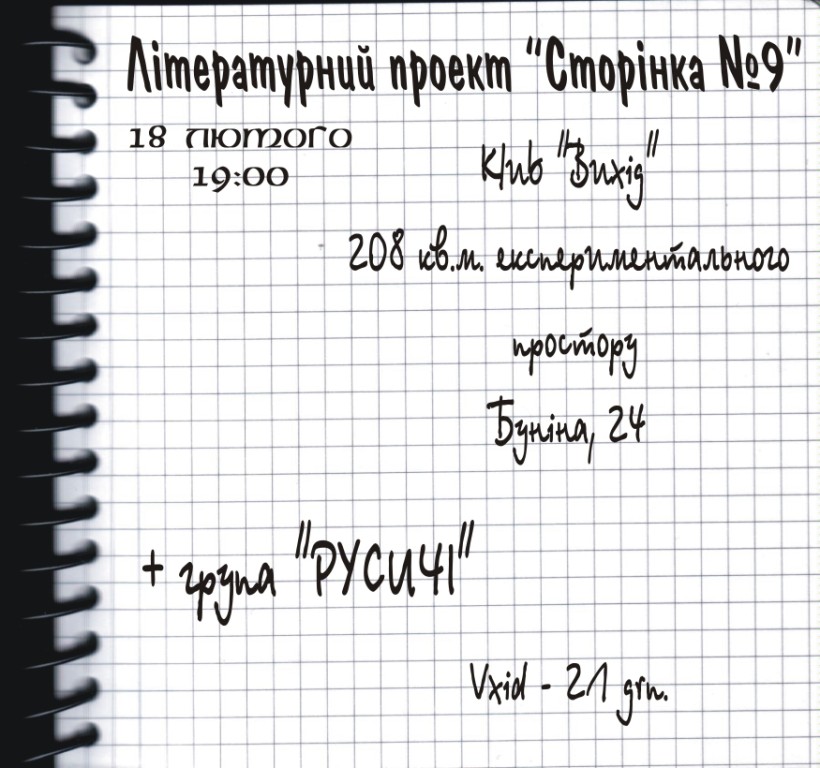 Літературний проект "Сторінка №9"
18 лютого
19:00
Клуб "Вихід"
208 кв.м. експериментального
простору
Буніна, 24
+ група "РУСИЧІ"
Vxid - 21 grn.